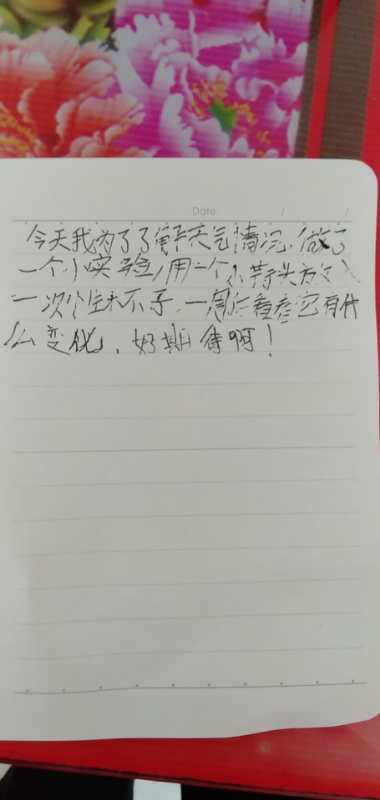 Date: / /
今天我为了了解天气情况,做了
一个小实验,用一个小头放入
一次性杯子,一周后看看它有什
么变化,好期待啊!